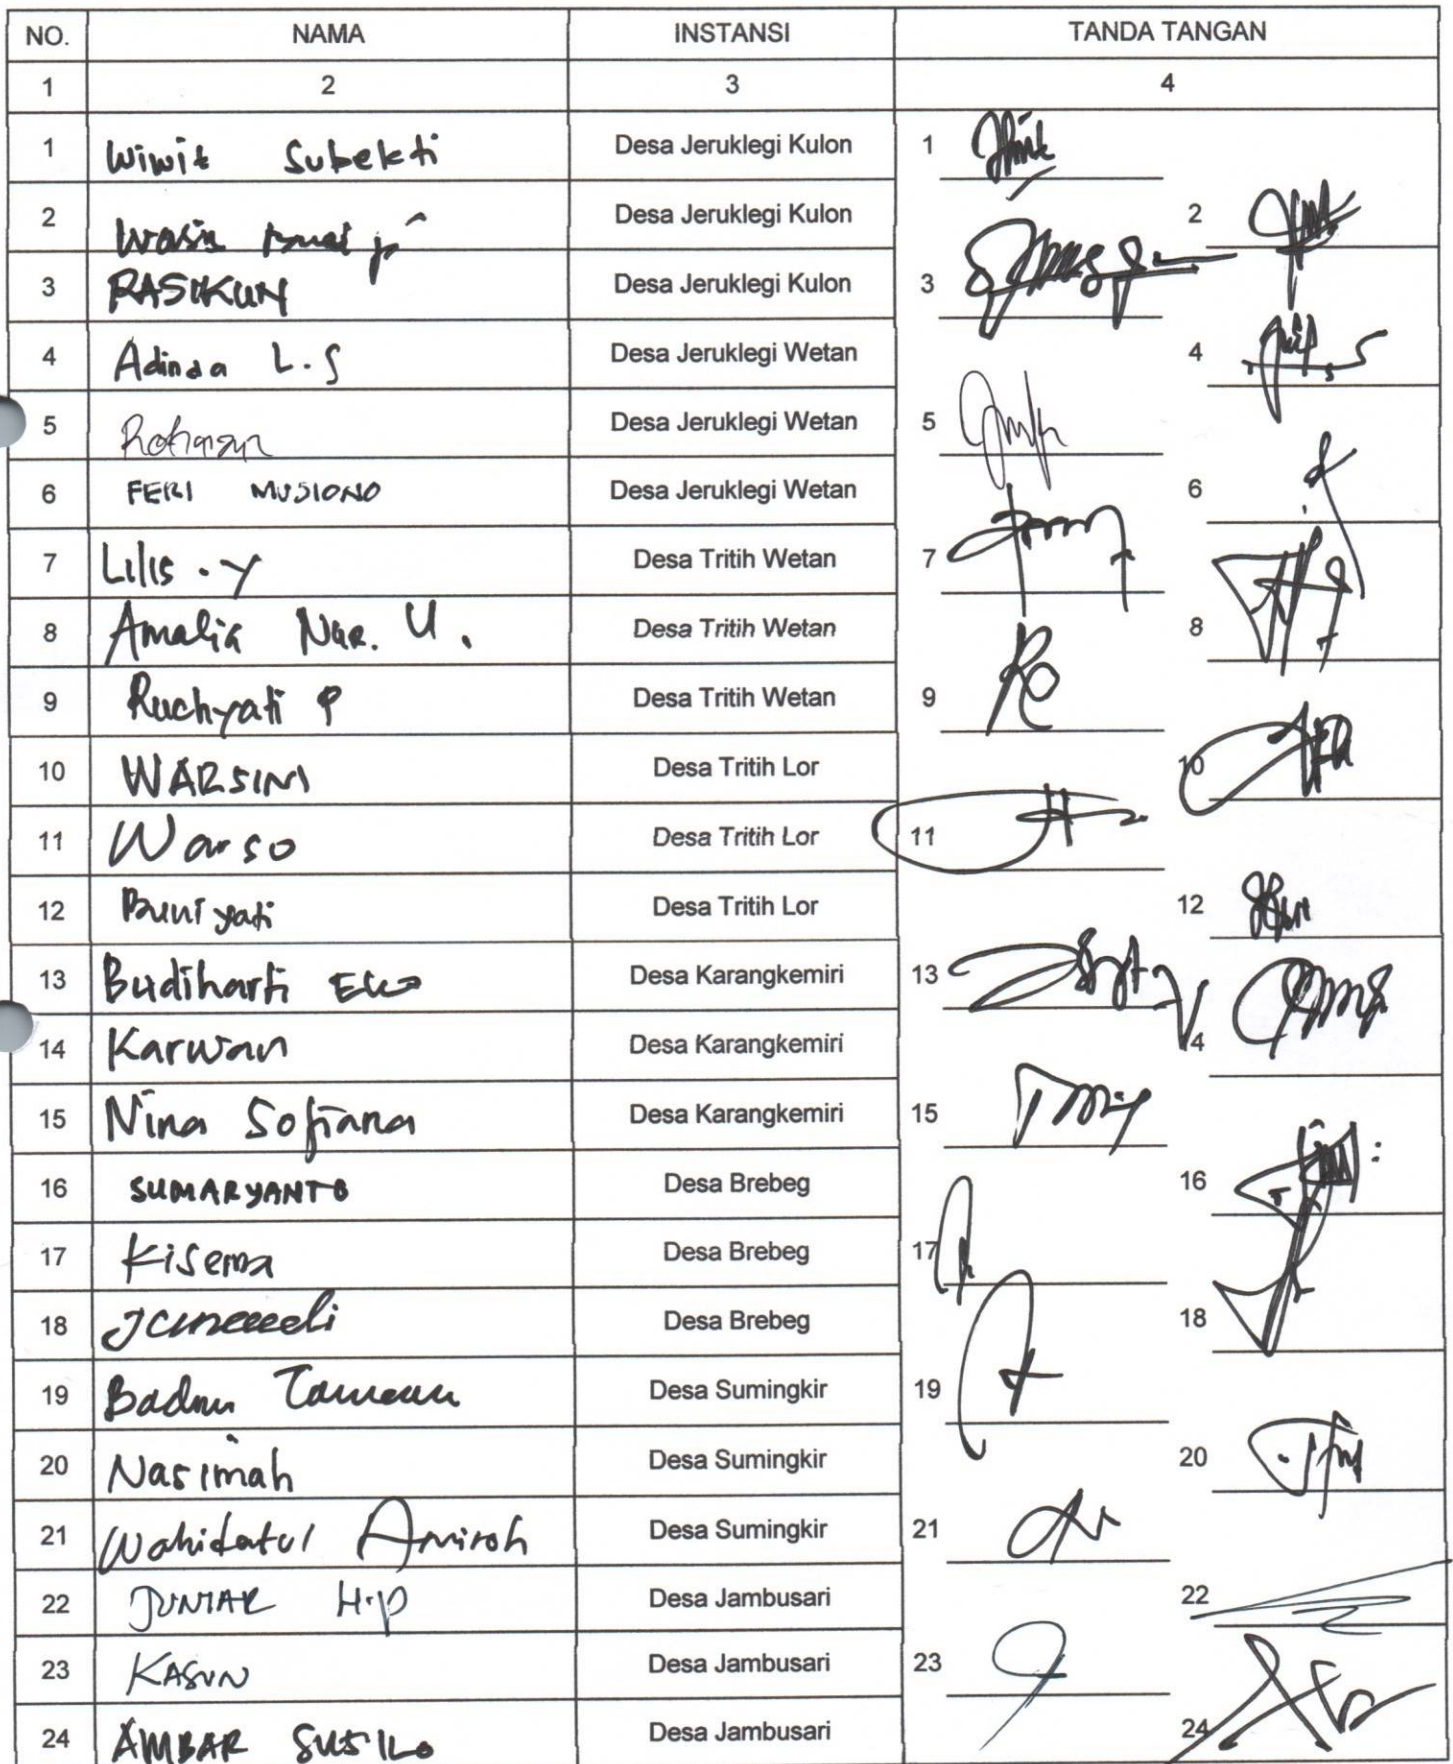 NO. NAMA INSTANSI TANDA TANGAN
1 2 3 4
1 Wiwit Subekti Desa Jeruklegi Kulon 1
2 Wasis Desa Jeruklegi Kulon 2
3 RASIKUN Desa Jeruklegi Kulon 3
4 Adinda L.S Desa Jeruklegi Wetan 4
5 Rohman Desa Jeruklegi Wetan 5
6 FERI MUSIONO Desa Jeruklegi Wetan 6
7 Lilis . Y Desa Tritih Wetan 7
8 Amalia Nur. U. Desa Tritih Wetan 8
9 Ruchyati P Desa Tritih Wetan 9
10 WARSINI Desa Tritih Lor 10
11 Warso Desa Tritih Lor 11
12 Buniyati Desa Tritih Lor 12
13 Budiharti Eko Desa Karangkemiri 13
14 Karwan Desa Karangkemiri 14
15 Nina Sofiana Desa Karangkemiri 15
16 SUMARYANTO Desa Brebeg 16
17 Kisema Desa Brebeg 17
18 Desa Brebeg 18
19 Desa Sumingkir 19
20 Nasimah Desa Sumingkir 20
21 Wahidatul Amiroh Desa Sumingkir 21
22 JUNIAR H.P Desa Jambusari 22
23 KASUN Desa Jambusari 23
24 AMBAR SUSILO Desa Jambusari 24